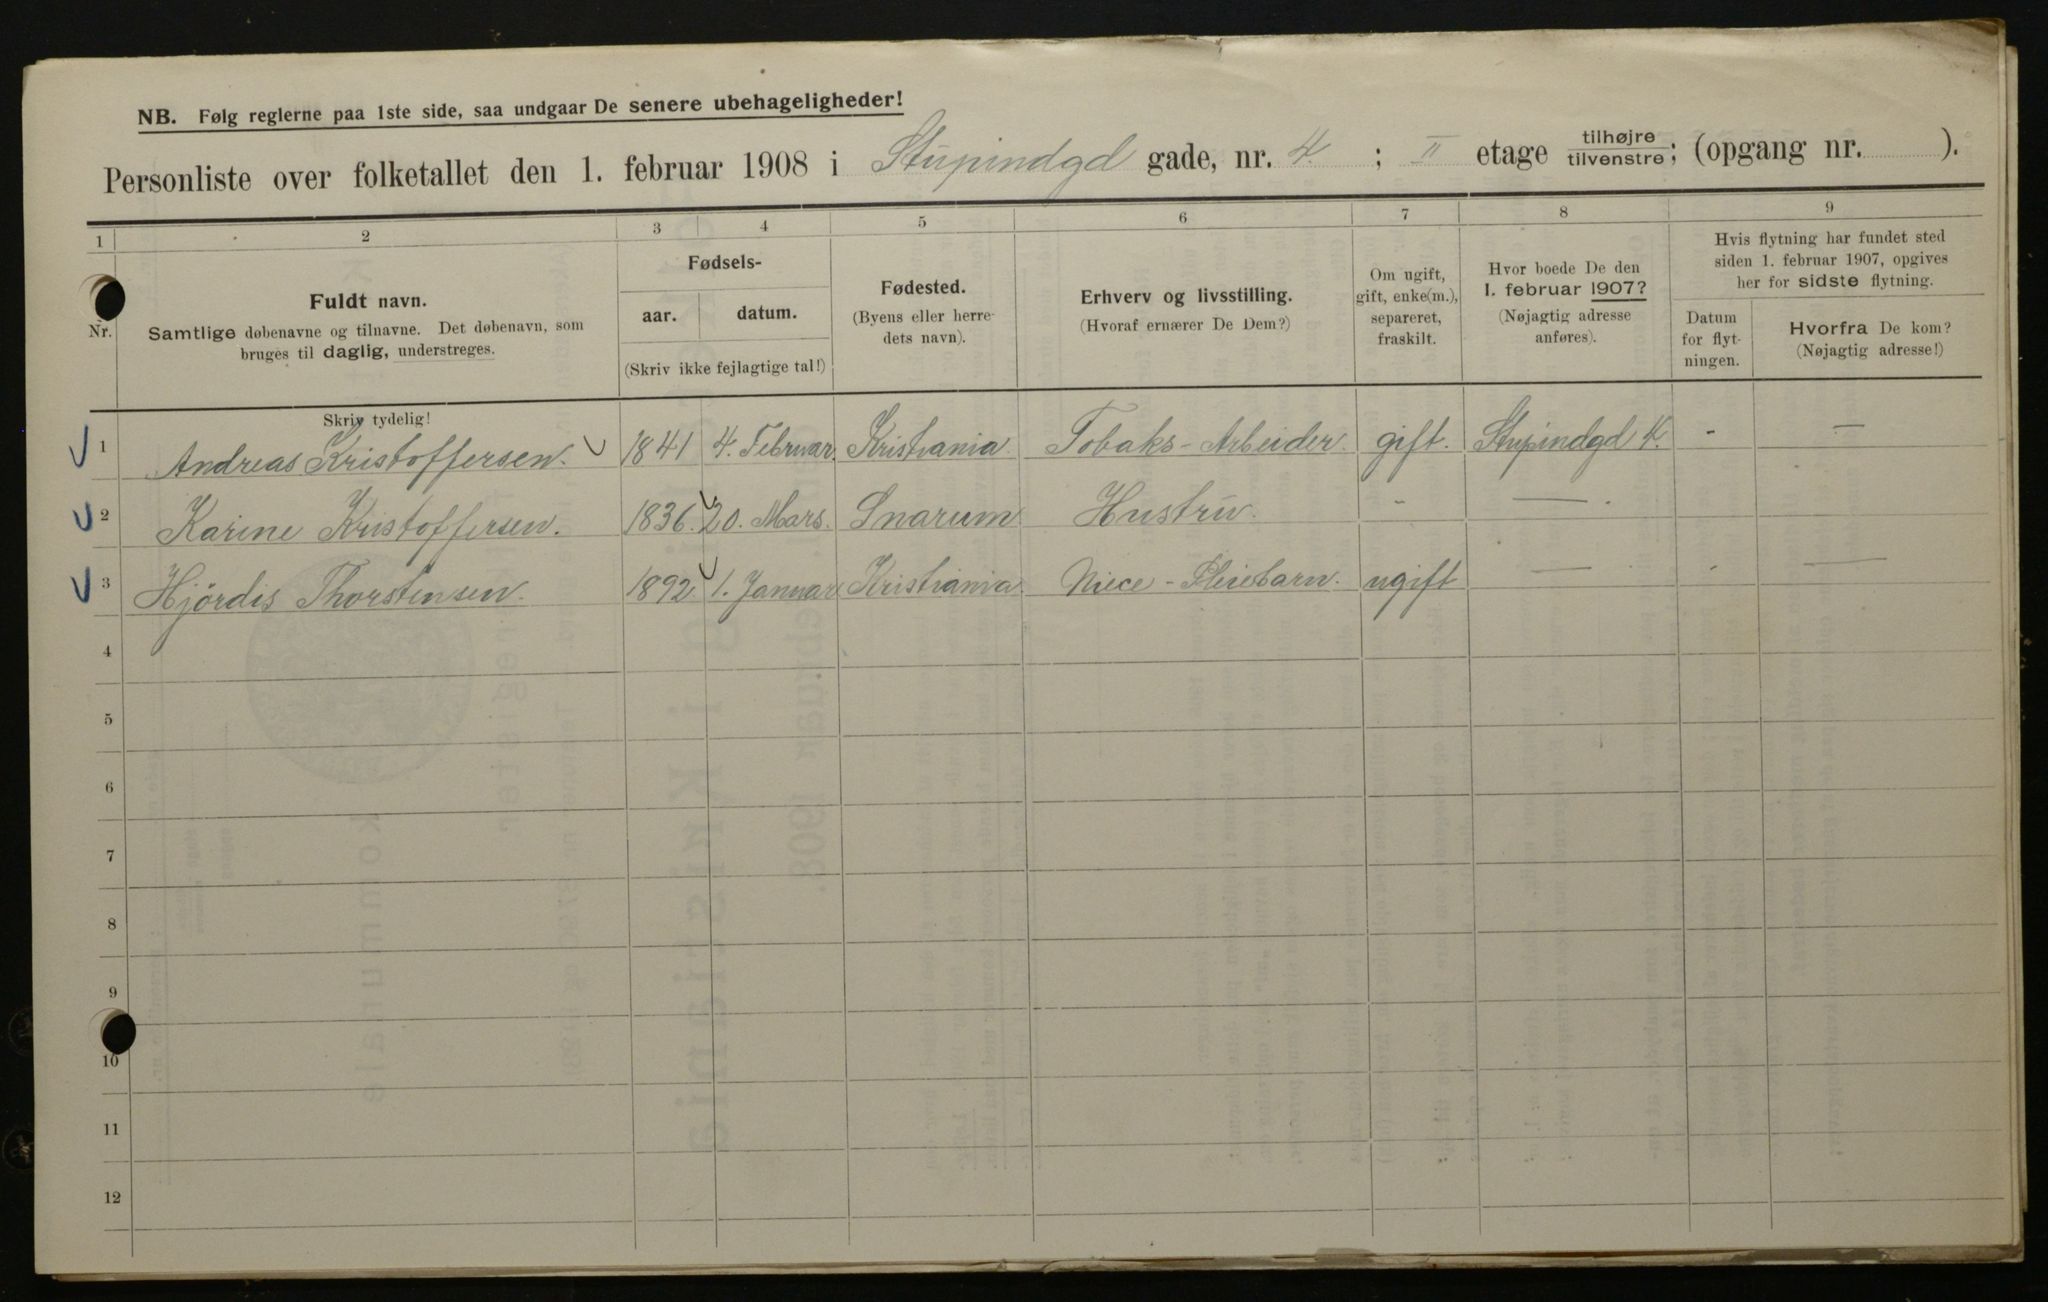 NB. Følg reglerne paa 1ste side, saa undgaar De senere ubehageligheder!
Personliste over folketallet den 1. februar 1908 i Stupindgd gade, nr. 4. ; II etage tilhøjre tilvenstre; (opgang nr. ).
1 2 3 4 5 6 7 8 9
Nr.
Fuldt navn.
Samtlige døbenavne og tilnavne. Det døbenavn, som
bruges til daglig, understreges.
Skriv tydelig!
Fødsels-
aar. datum.
(Skriv ikke fejlagtige tal!)
Fødested.
(Byens eller herre-
dets navn).
Erhverv og livsstilling.
(Hvoraf ernærer De Dem?)
Om ugift,
gift, enke(m.),
separeret,
fraskilt.
Hvor boede De den
1. februar 1907?
(Nøjagtig adresse
anføres).
Hvis flytning har fundet sted
siden 1. februar 1907, opgives
her for sidste flytning.
Datum
for flyt-
ningen.
Hvorfra De kom?
(Nøjagtig adresse!)
1 Andreas Kristoffersen. 1841 4. Februar. Kristiania. Tobaks-Arbeider. gift. Stupindgd 4. - —
2 Karine Kristoffersen. 1836. 20. Mars. Snarum Hustru. - —
3 Hjördis Thorstensen. 1892 1. Januar Kristiania Niece - Pleiebarn. ugift — - —
4
5
6
7
8
9
10
11
12